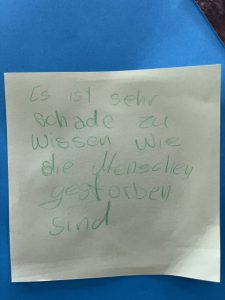 Es ist sehr
schade zu
wissen wie
die Menschen
gestorben
sind